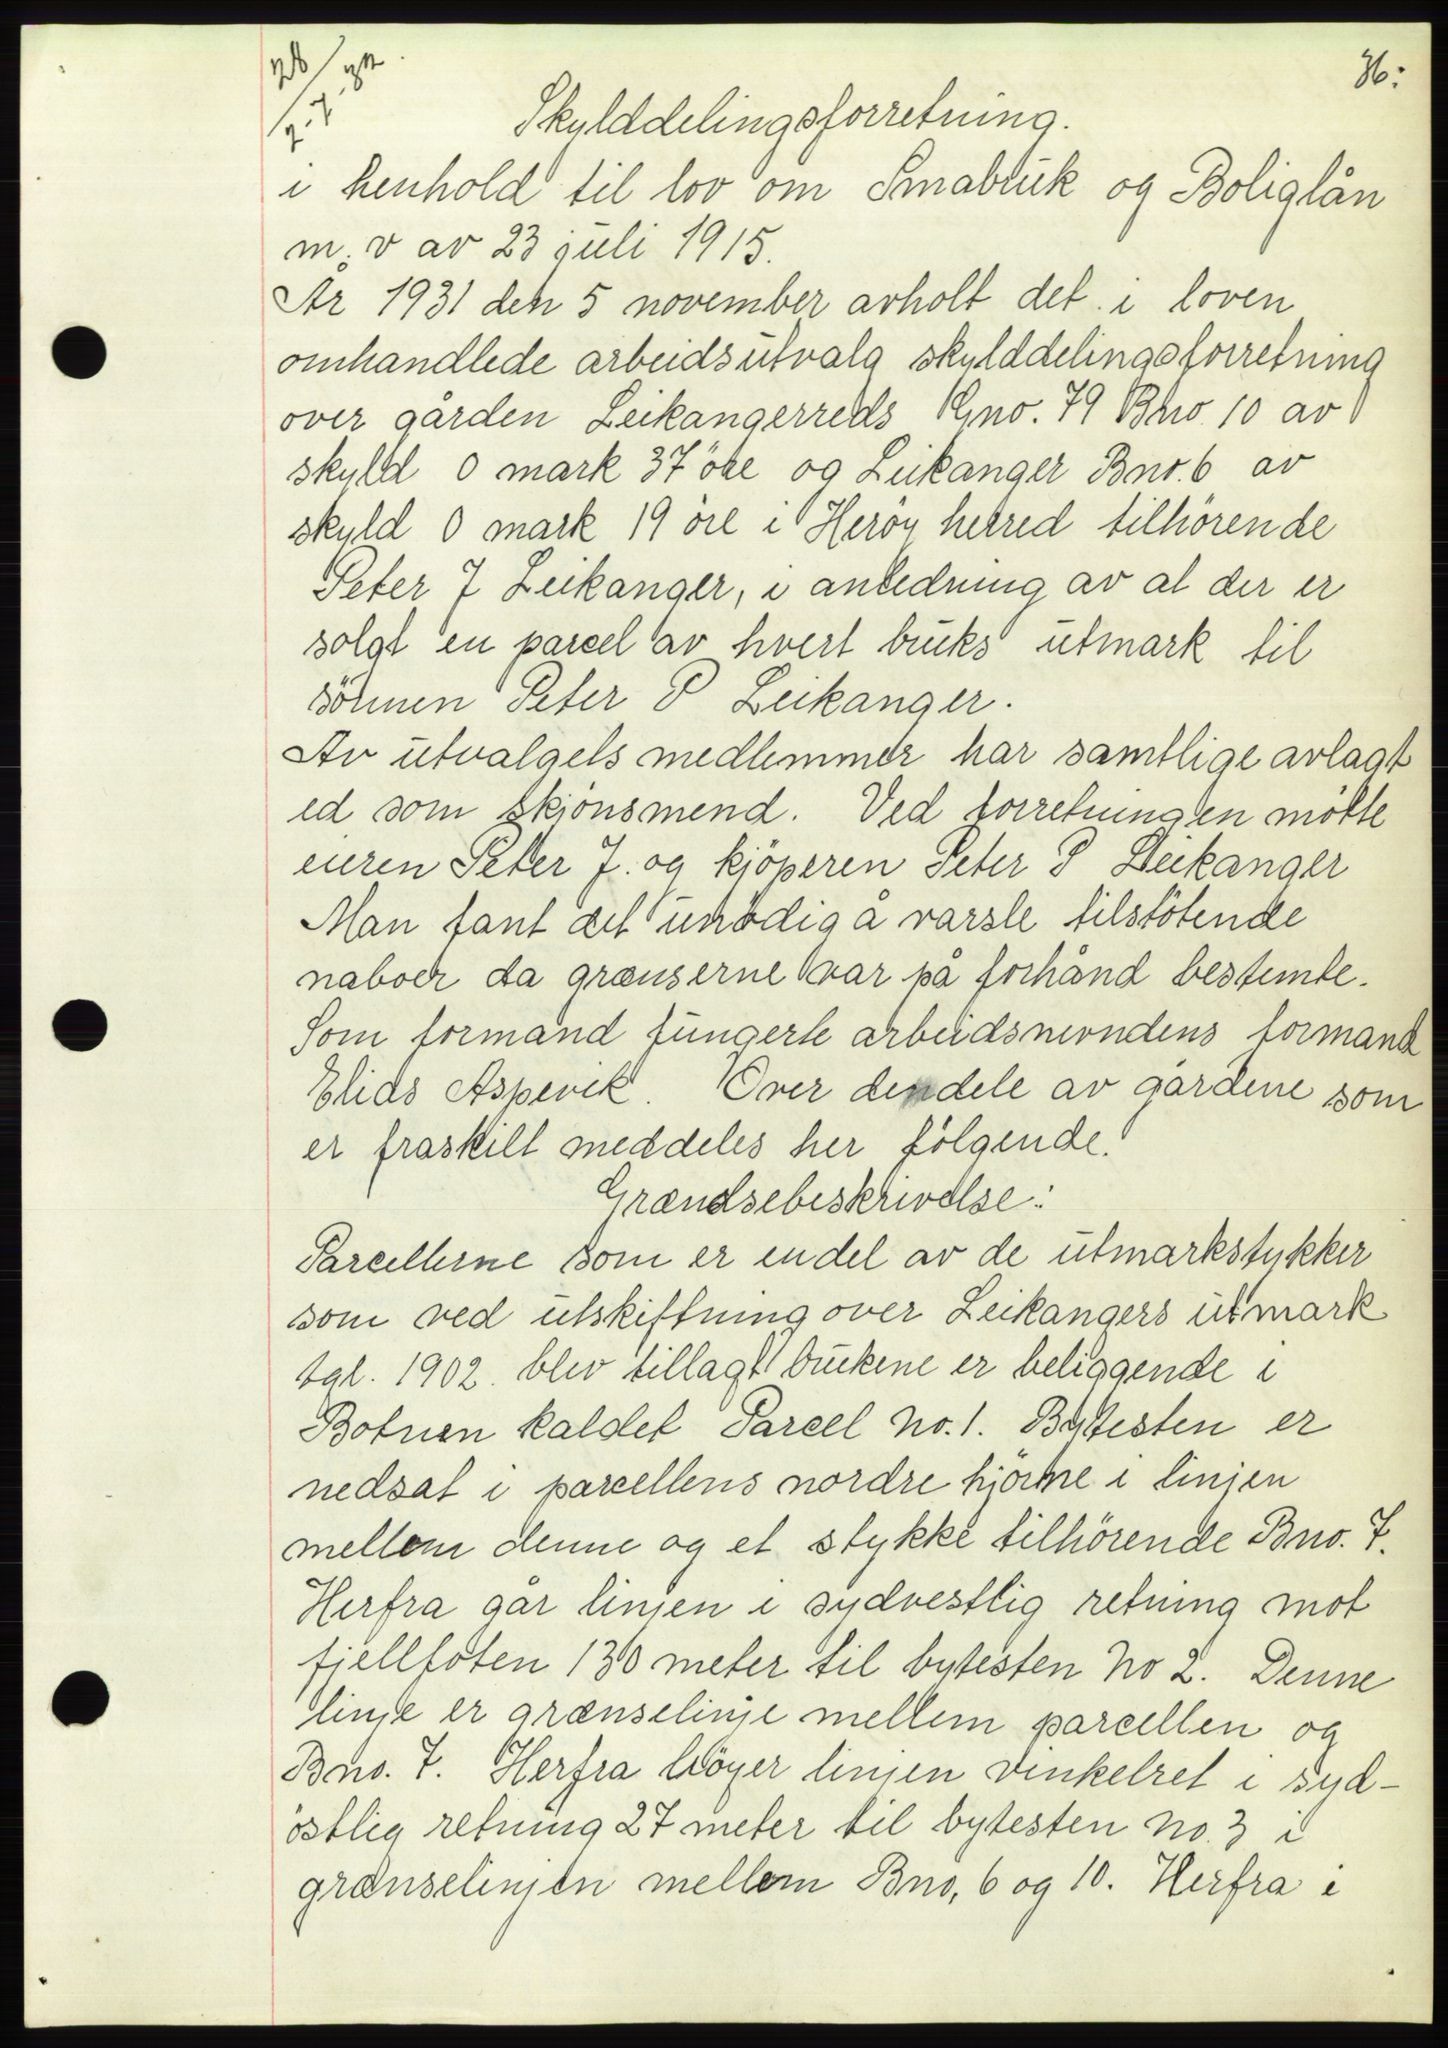 36:
Skylddelingsforretning.
i henhold til lov om Småbruk og Boliglån
m. v av 23 juli 1915.
År 1931 den 5 november avholt det i loven
omhandlede arbeidsutvalg skylddelingsforretning
over gården Leikangerreds Gno. 79 Bno. 10 av
skyld 0 mark 37 öre og Leikanger Bno. 6 av
skyld 0 mark 19 öre i Heröy herred tilhörende
Peter J Leikanger, i anledning av at der er
solgt en parcel av hvert bruks utmark til
sönnen Peter P Leikanger.
Av utvalgets medlemmer har samtlige avlagt
ed som skjönsmend. Ved forretningen mötte
eieren Peter J. og kjöperen Peter P Leikanger
Man fant det unödig å varsle tilstötende
naboer da grænserne var på forhånd bestemte.
Som formand fungerte arbeidsnevndens formand
Elias Aspevik. Over den dele av gårdene som
er fraskilt meddeles her fölgende.
Grændsebeskrivelse:
Parcellerne som er en del av de utmarkstykker
som ved utskiftning over Leikangers utmark
tgl. 1902. blev tillagt brukene er beliggende i
Botnen kaldet Parcel No. 1. Bytesten er
nedsat i parcellens nordre hjörne i linjen
mellem denne og et stykke tilhörende Bno. 7.
Herfra går linjen i sydvestlig retning mot
fjellfoten 130 meter til bytesten No 2. Denne
linje er grænselinje mellem parcellen og
Bno. 7. Herfra böyer linjen vinkelret i syd-
östlig retning 27 meter til bytesten No. 3 i
grænselinjen mellem Bno, 6 og 10. Herfra i